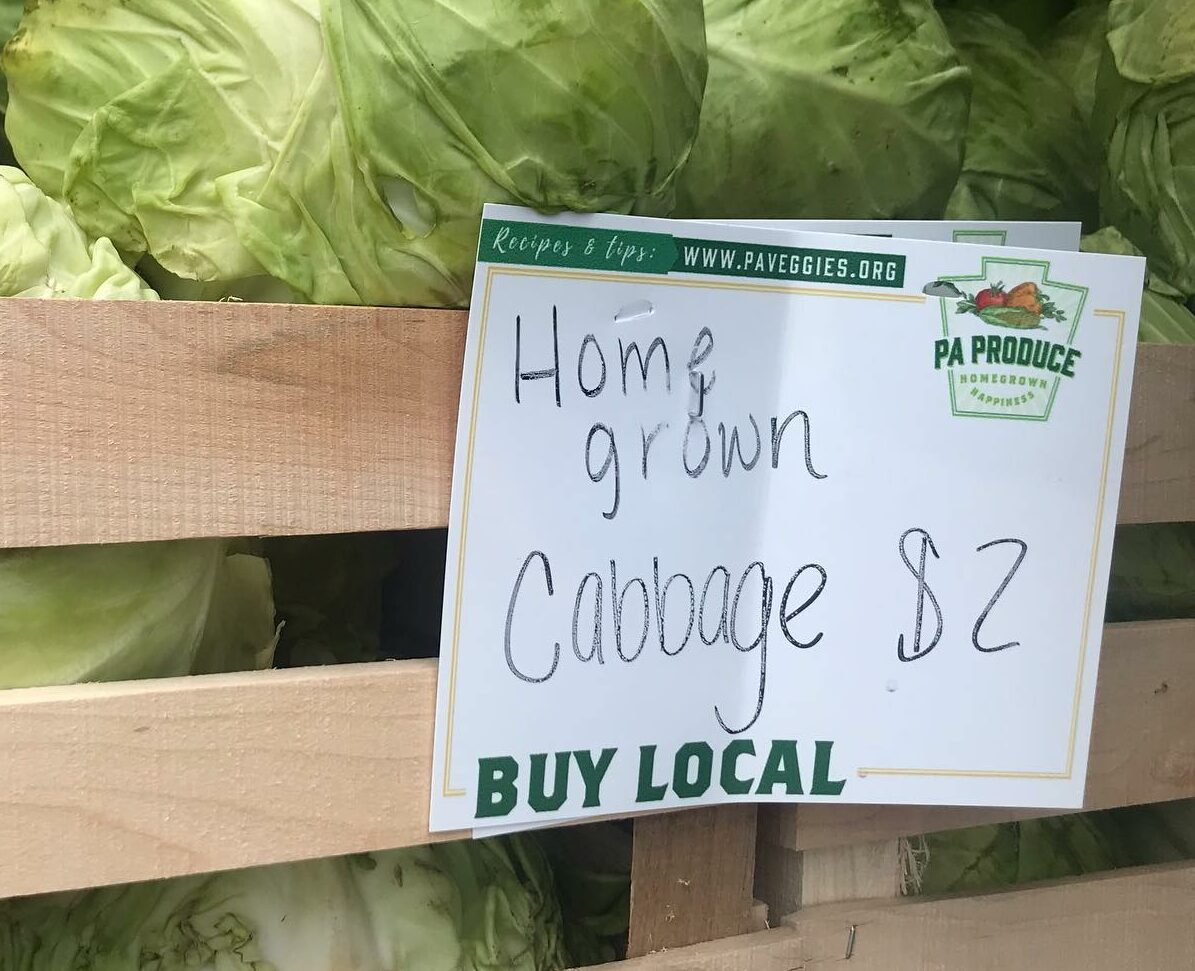 Recipes & tips: WWW.PAVEGGIES.ORG
PA PRODUCE
HOMEGROWN
HAPPINESS
Home
grown
Cabbage $2
BUY LOCAL